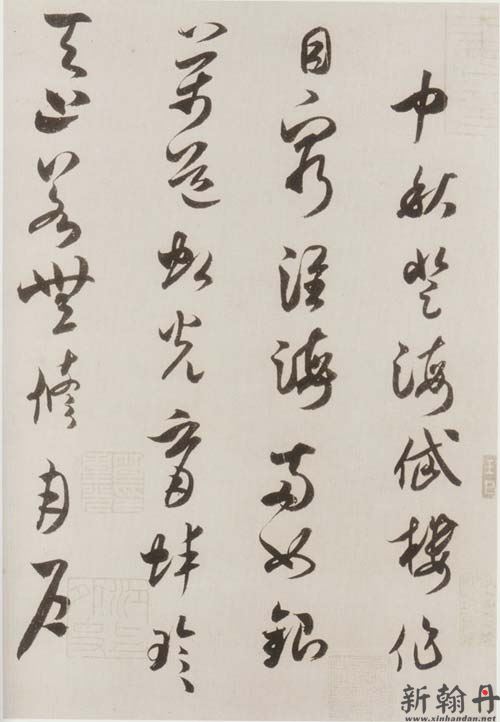 中秋登海岱樓作
目窮淮海兩如銀
萬道虹光育蚌珍
天上若無修月户
新翰丹
www.xinhandan.net